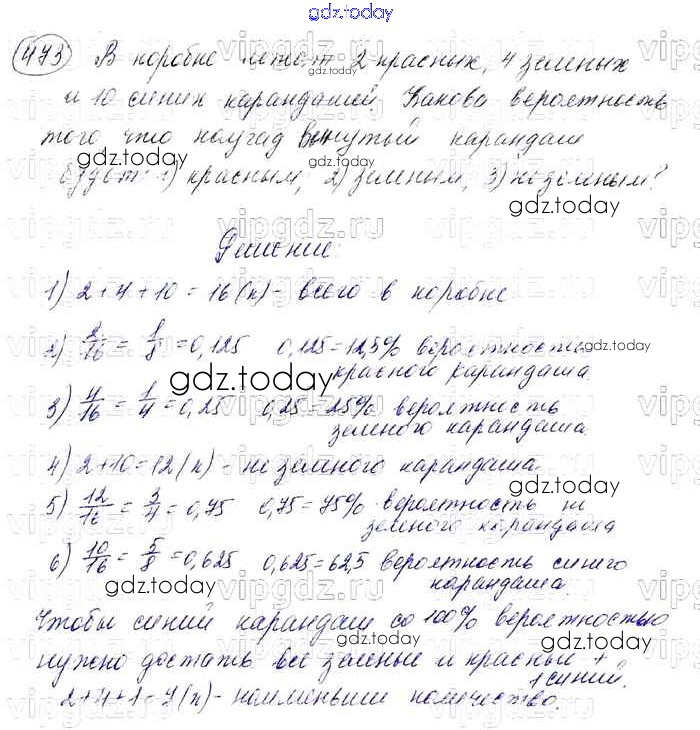 gdz.today
473) В коробке лежат 2 красных, 4 зеленых
и 10 синих карандашей. Какова вероятность
того что наугад вынутый карандаш
будет: 1) красным, 2) зеленым, 3) не зеленым?
Решение:
1) 2+4+10 = 16(к)- всего в коробке
2) 2/16 = 1/8 = 0,125 0,125 = 12,5% вероятность
красного карандаша
3) 4/16 = 1/4 = 0,25 0,25 = 25% вероятность
зеленого карандаша.
4) 2+10=12(к) - не зеленого карандаша
5) 12/16 = 3/4 = 0,75 0,75 = 75% вероятность не
зеленого карандаша
6) 10/16 = 5/8 = 0,625 0,625 = 62,5 вероятность синего
карандаша.
Чтобы синий карандаш со 100% вероятностью
нужно достать все зеленые и красные +
1 синий.
2+4+1=7(к)- наименьшее количество.
gdz.today